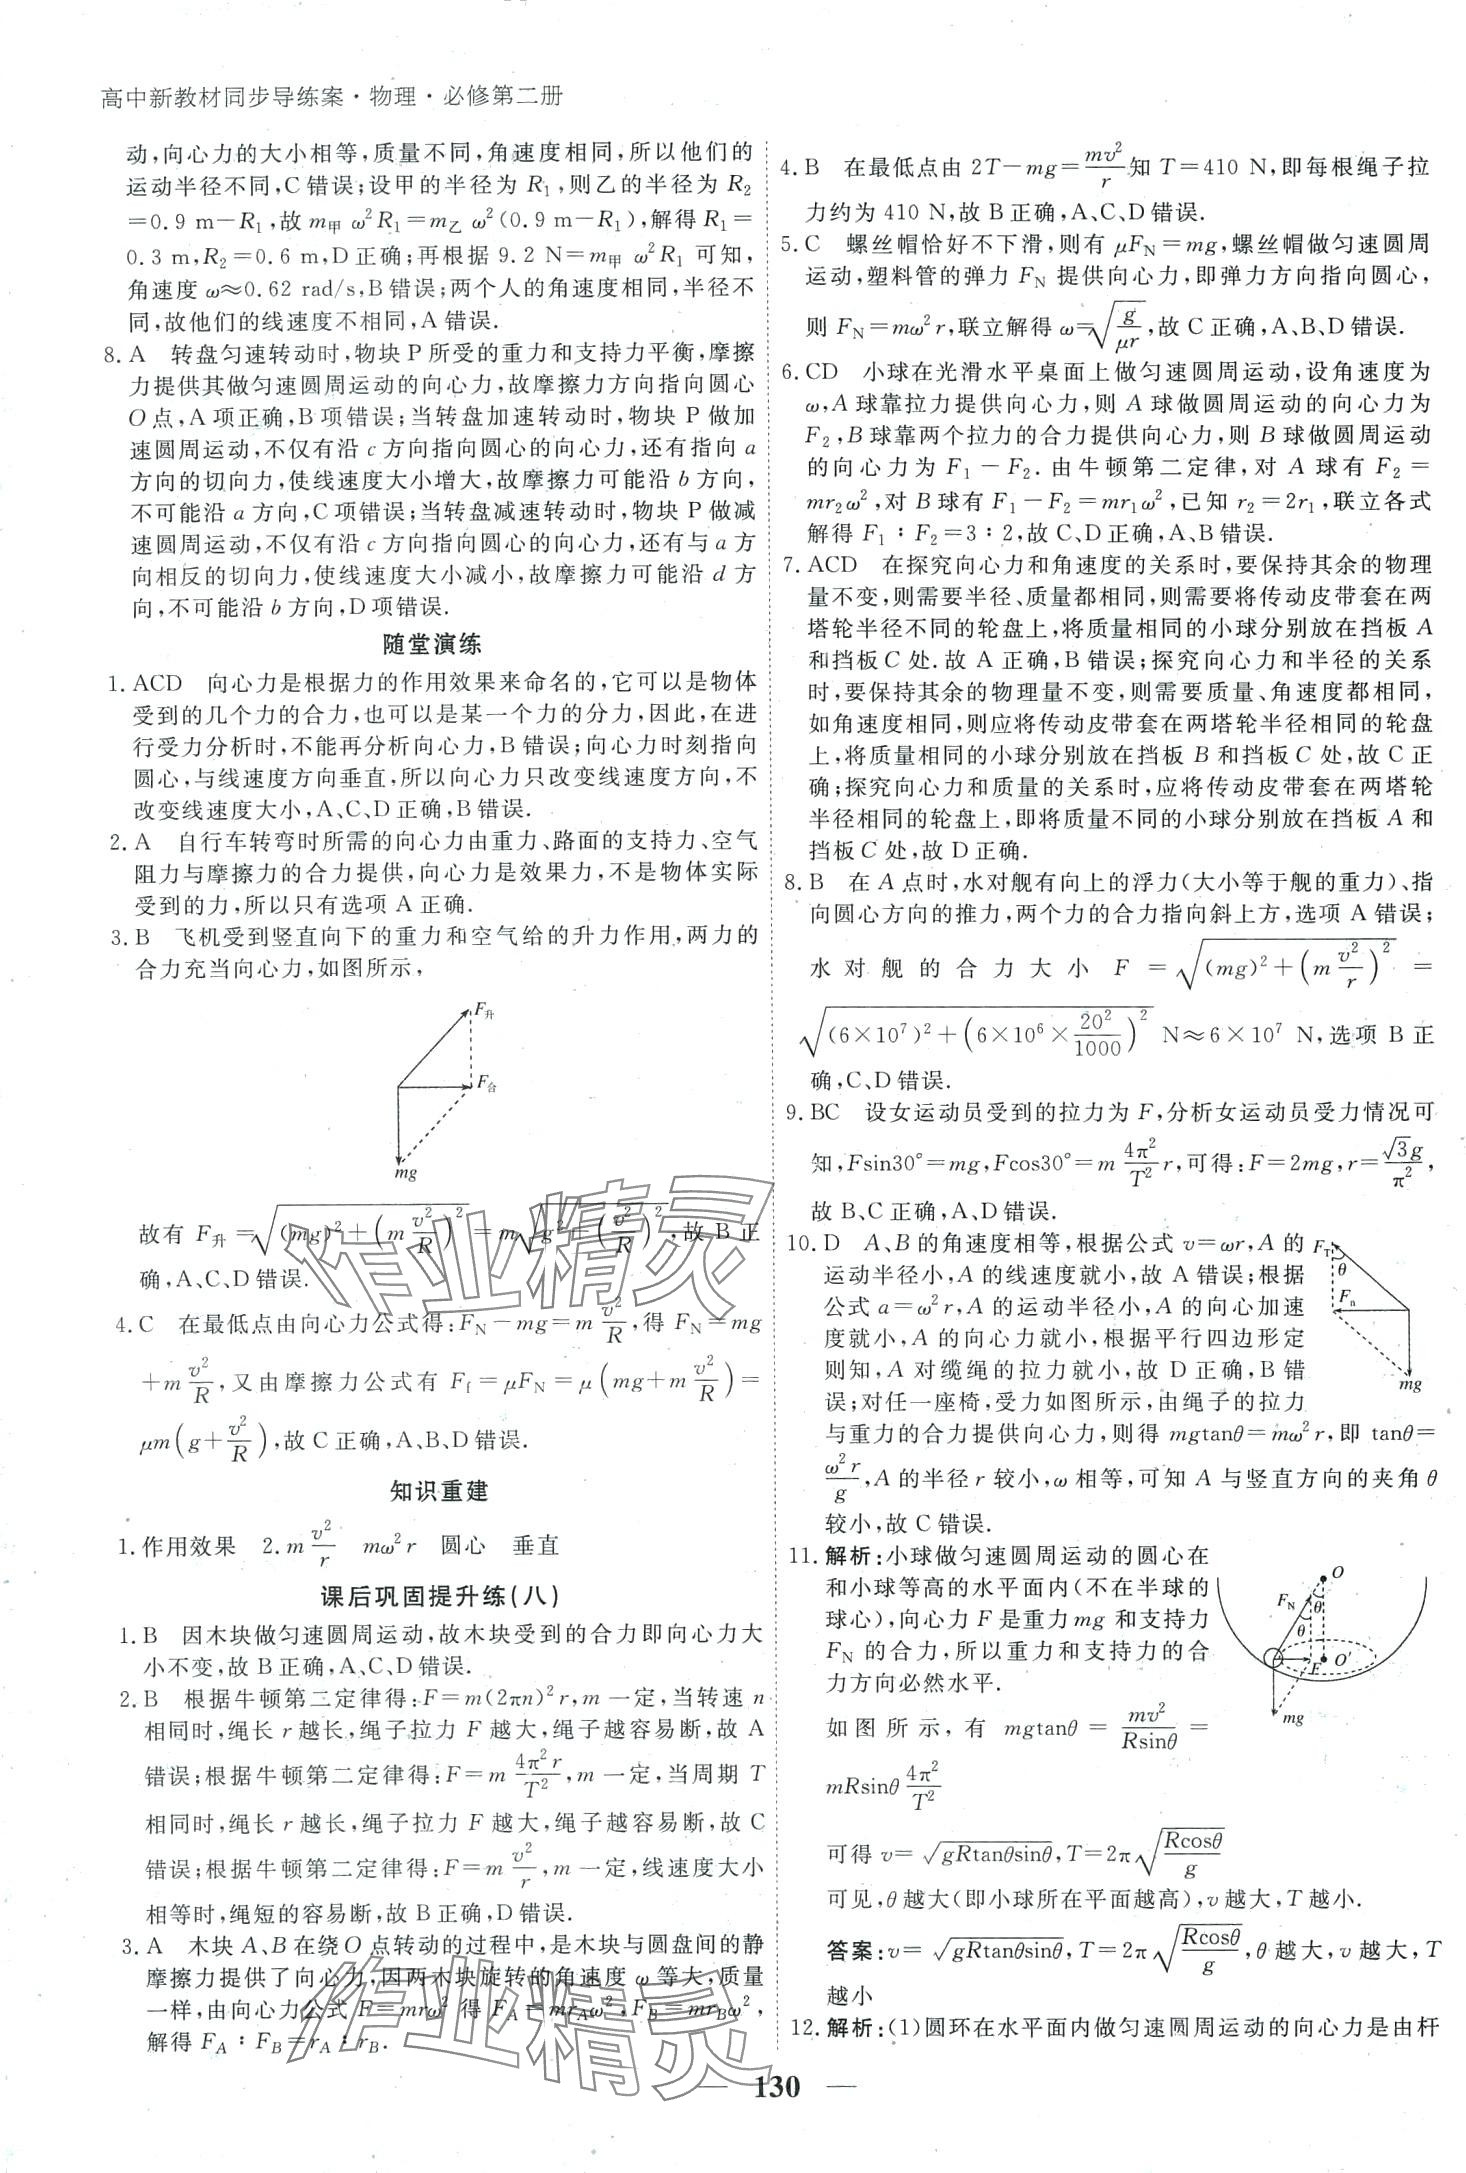 高中新教材同步导练案·物理·必修第二册
动,向心力的大小相等,质量不同,角速度相同,所以他们的
运动半径不同,C错误;设甲的半径为 R₁,则乙的半径为 R₂
=0.9 m-R₁,故 m甲 ω²R₁=m乙 ω²(0.9 m-R₁),解得 R₁=
0.3 m,R₂=0.6 m,D正确;再根据 9.2 N=m甲 ω²R₁ 可知,
角速度 ω≈0.62 rad/s,B错误;两个人的角速度相同,半径不
同,故他们的线速度不相同,A错误.
8. A 转盘匀速转动时,物块 P 所受的重力和支持力平衡,摩擦
力提供其做匀速圆周运动的向心力,故摩擦力方向指向圆心
O 点,A项正确,B项错误;当转盘加速转动时,物块 P 做加
速圆周运动,不仅有沿 c 方向指向圆心的向心力,还有指向 a
方向的切向力,使线速度大小增大,故摩擦力可能沿 b 方向,
不可能沿 a 方向,C项错误;当转盘减速转动时,物块 P 做减
速圆周运动,不仅有沿 c 方向指向圆心的向心力,还有与 a 方
向相反的切向力,使线速度大小减小,故摩擦力可能沿 d 方
向,不可能沿 b 方向,D项错误.
随堂演练
1. ACD 向心力是根据力的作用效果来命名的,它可以是物体
受到的几个力的合力,也可以是某一个力的分力,因此,在进
行受力分析时,不能再分析向心力,B错误;向心力时刻指向
圆心,与线速度方向垂直,所以向心力只改变线速度方向,不
改变线速度大小,A、C、D正确,B错误.
2. A 自行车转弯时所需的向心力由重力、路面的支持力、空气
阻力与摩擦力的合力提供,向心力是效果力,不是物体实际
受到的力,所以只有选项 A 正确.
3. B 飞机受到竖直向下的重力和空气给的升力作用,两力的
合力充当向心力,如图所示,
F升
F合
mg
故有 F升=√((mg)²+(m v²/R)²)=m√(g²+(v²/R)²),故 B 正
确,A、C、D错误.
4. C 在最低点由向心力公式得:F_N-mg=m v²/R,得 F_N=mg
+m v²/R,又由摩擦力公式有 F_f=μF_N=μ(mg+m v²/R)=
μm(g+v²/R),故 C 正确,A、B、D错误.
知识重建
1. 作用效果 2. m v²/r mω²r 圆心 垂直
课后巩固提升练(八)
1. B 因木块做匀速圆周运动,故木块受到的合力即向心力大
小不变,故 B 正确,A、C、D错误.
2. B 根据牛顿第二定律得:F=m(2πn)²r,m 一定,当转速 n
相同时,绳长 r 越长,绳子拉力 F 越大,绳子越容易断,故 A
错误;根据牛顿第二定律得:F=m 4π²r/T²,m 一定,当周期 T
相同时,绳长 r 越长,绳子拉力 F 越大,绳子越容易断,故 C
错误;根据牛顿第二定律得:F=m v²/r,m 一定,线速度大小
相等时,绳短的容易断,故 B 正确,D错误.
3. A 木块 A、B 在绕 O 点转动的过程中,是木块与圆盘间的静
摩擦力提供了向心力,因两木块旋转的角速度 ω 等大,质量
一样,由向心力公式 F=mrω² 得 F_A=mr_Aω²,F_B=mr_Bω²,
解得 F_A∶F_B=r_A∶r_B.
4. B 在最低点由 2T-mg=mv²/r 知 T=410 N,即每根绳子拉
力约为 410 N,故 B 正确,A、C、D错误.
5. C 螺丝帽恰好不下滑,则有 μF_N=mg,螺丝帽做匀速圆周
运动,塑料管的弹力 F_N 提供向心力,即弹力方向指向圆心,
则 F_N=mω²r,联立解得 ω=√(g/μr),故 C 正确,A、B、D错误.
6. CD 小球在光滑水平桌面上做匀速圆周运动,设角速度为
ω,A 球靠拉力提供向心力,则 A 球做圆周运动的向心力为
F₂,B 球靠两个拉力的合力提供向心力,则 B 球做圆周运动
的向心力为 F₁-F₂.由牛顿第二定律,对 A 球有 F₂=
mr₂ω²,对 B 球有 F₁-F₂=mr₁ω²,已知 r₂=2r₁,联立各式
解得 F₁∶F₂=3∶2,故 C、D正确,A、B错误.
7. ACD 在探究向心力和角速度的关系时,要保持其余的物理
量不变,则需要半径、质量都相同,则需要将传动皮带套在两
塔轮半径不同的轮盘上,将质量相同的小球分别放在挡板 A
和挡板 C 处.故 A 正确,B错误;探究向心力和半径的关系
时,要保持其余的物理量不变,则需要质量、角速度都相同,
如角速度相同,则应将传动皮带套在两塔轮半径相同的轮盘
上,将质量相同的小球分别放在挡板 B 和挡板 C 处,故 C 正
确;探究向心力和质量的关系时,应将传动皮带套在两塔轮
半径相同的轮盘上,即将质量不同的小球分别放在挡板 A 和
挡板 C 处,故 D 正确.
8. B 在 A 点时,水对舰有向上的浮力(大小等于舰的重力)、指
向圆心方向的推力,两个力的合力指向斜上方,选项 A 错误;
水对舰的合力大小 F=√((mg)²+(m v²/r)²)=
√((6×10⁷)²+(6×10⁶×20²/1000)²) N≈6×10⁷ N,选项 B 正
确,C、D错误.
9. BC 设女运动员受到的拉力为 F,分析女运动员受力情况可
知,Fsin30°=mg,Fcos30°=m 4π²/T² r,可得:F=2mg,r=√3g/π²,
故 B、C正确,A、D错误.
10. D A、B 的角速度相等,根据公式 v=ωr,A 的
运动半径小,A 的线速度就小,故 A 错误;根据
公式 a=ω²r,A 的运动半径小,A 的向心加速
度就小,A 的向心力就小,根据平行四边形定
则知,A 对缆绳的拉力就小,故 D 正确,B错
误;对任一座椅,受力如图所示,由绳子的拉力
与重力的合力提供向心力,则得 mgtanθ=mω²r,即 tanθ=
ω²r/g,A 的半径 r 较小,ω 相等,可知 A 与竖直方向的夹角 θ
较小,故 C 错误.
F_T
θ
F_n
mg
11. 解析:小球做匀速圆周运动的圆心在
和小球等高的水平面内(不在半球的
球心),向心力 F 是重力 mg 和支持力
F_N 的合力,所以重力和支持力的合
力方向必然水平.
O
F_N
θ
θ
F
O′
mg
如图所示,有 mgtanθ=mv²/Rsinθ=
mRsinθ 4π²/T²
可得 v=√(gRtanθsinθ),T=2π√(Rcosθ/g)
可见,θ 越大(即小球所在平面越高),v 越大,T 越小.
答案:v=√(gRtanθsinθ),T=2π√(Rcosθ/g),θ 越大,v 越大,T
越小
12. 解析:(1)圆环在水平面内做匀速圆周运动的向心力是由杆
— 130 —
作业精灵
作业精灵